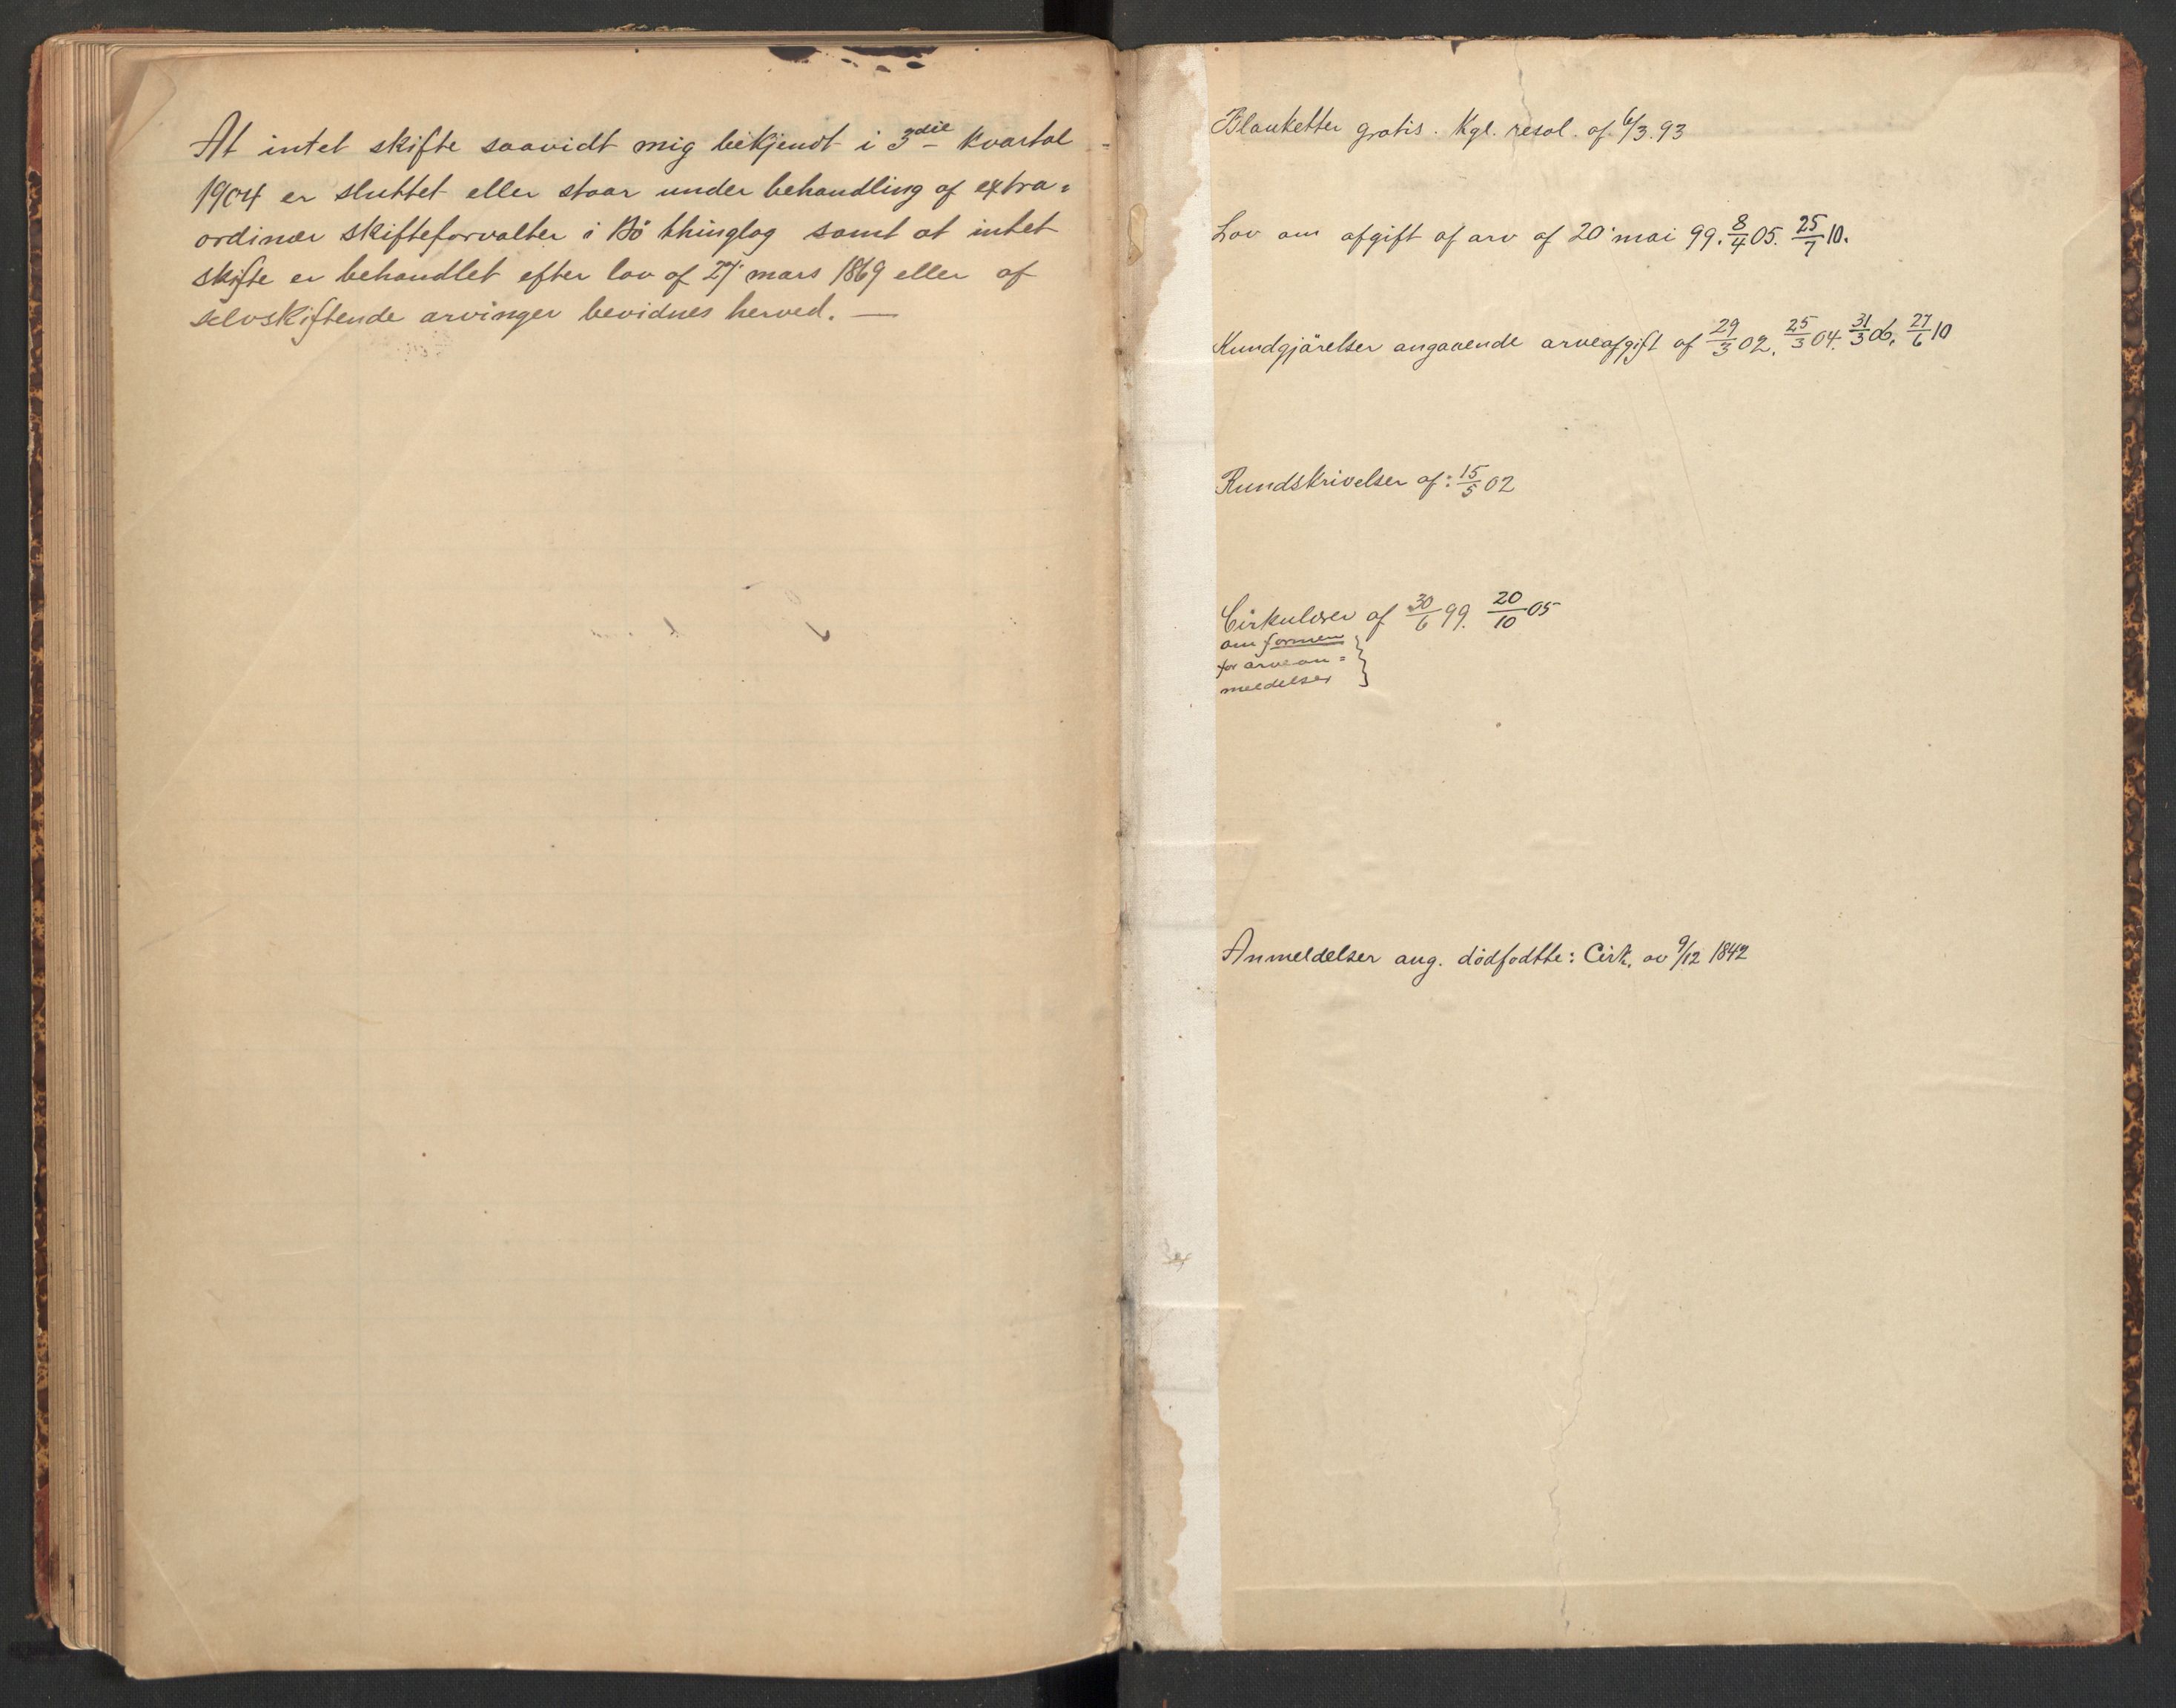 At intet skifte saavidt mig bekjendt i 3die kvartal
1904 er sluttet eller staar under behandling af extra=
ordinær skifteforvalter i Bö thinglag samt at intet
skifte er behandlet efter lov af 27' mars 1869 eller af
selvskiftende arvinger bevidnes herved. —
Blanketter gratis. Kgl. resol. af 6/3.93
Lov om afgift af arv af 20' mai 99. 8/4 05. 25/7 10.
Kundgjörelser angaaende arveafgift af 29/3 02. 25/3 04. 31/3 06. 27/6 10
Rundskrivelser af: 15/5 02
Cirkulærer af 30/6 99. 20/10 05
om formen
for arvean=
meldelser
Anmeldelser ang. dödfödtte: Cirk. av 9/12 1842